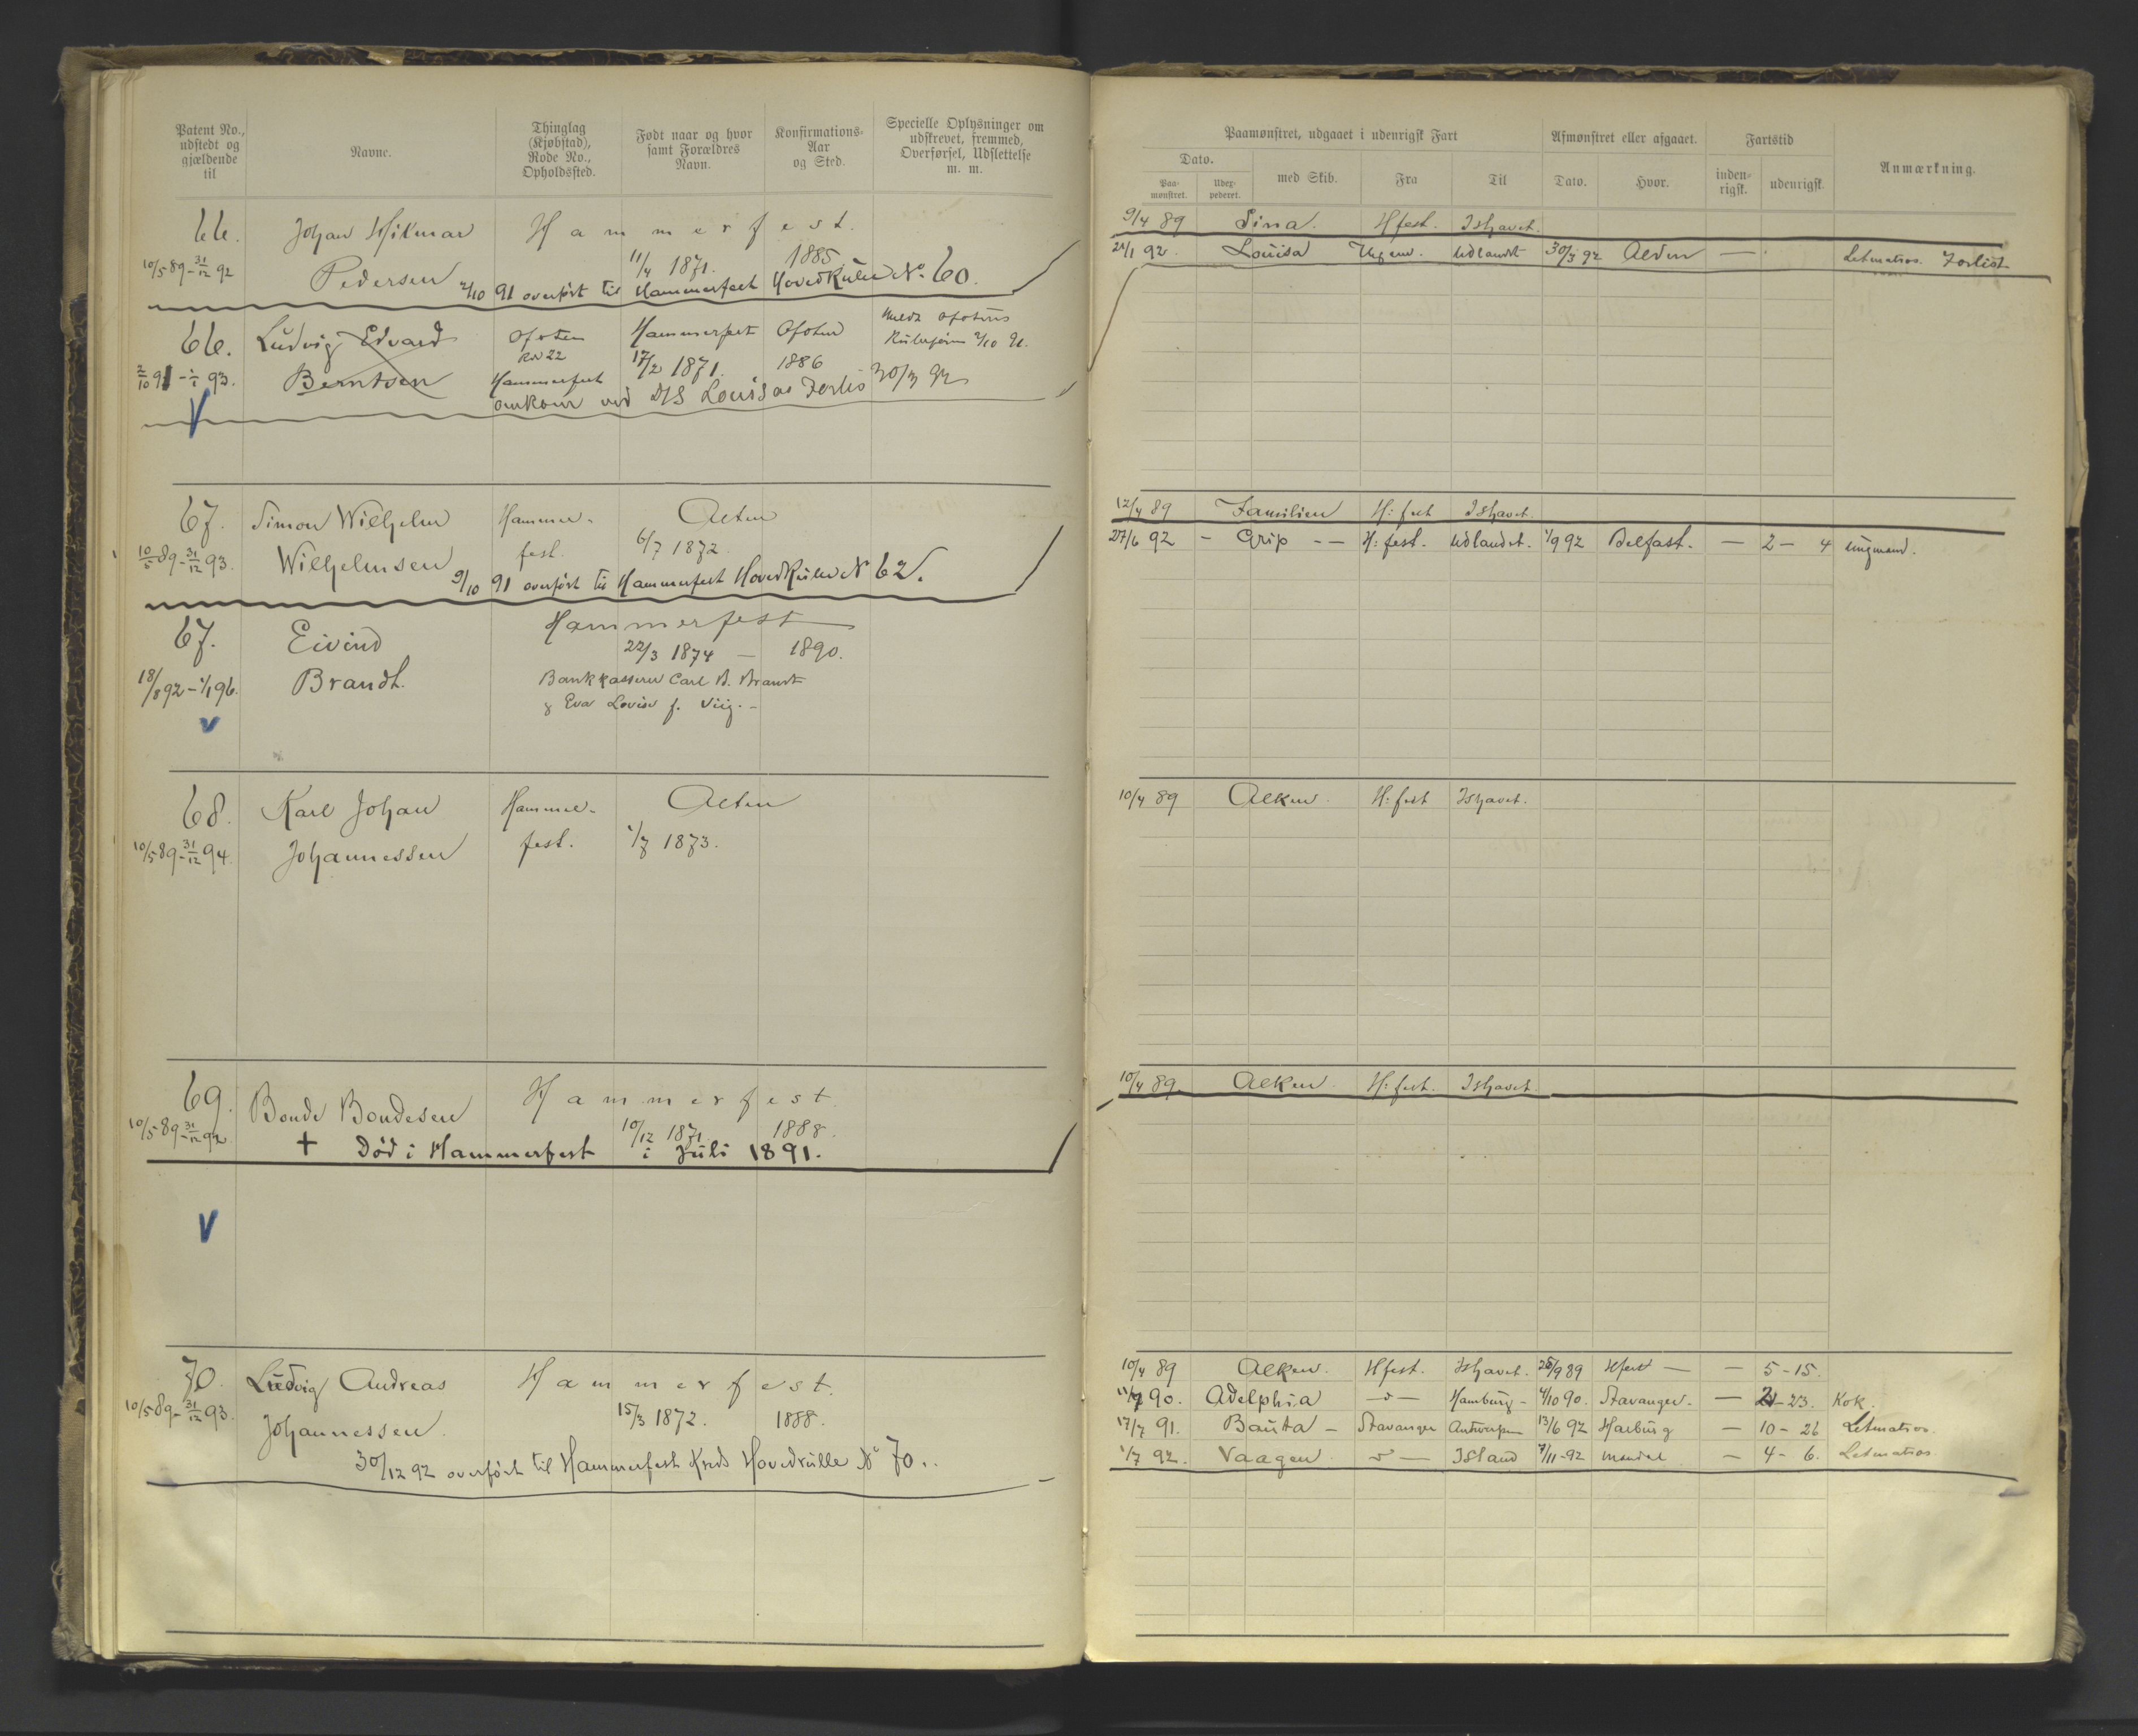 Patent No., udstedt og gjældende til
Navne.
Thinglag (Kjøbstad), Rode No., Opholdssted.
Født naar og hvor samt Forældres Navn.
Konfirmations-Aar og Sted.
Specielle Oplysninger om udskrevet, fremmed, Overførsel, Udslettelse m. m.
66. Johan Hilmar Hammerfest.
10/5 89 - 31/12 92 Pedersen 11/4 1871. 1885.
2/10 91 overført til Hammerfest Hovedrulle No. 60.
66. Ludvig Edvard Ofoten Hammerfest Ofoten
Rd 22 17/2 1871. 1886
2/10 91 - 1/1 93. Berntsen Hammerfest
omkom ved D/S Louisas Forlis 30/3 92
67. Simon Wilhelm Hammer- Alten
10/5 89 - 31/12 93. Wilhelmsen fest. 6/7 1872.
9/10 91 overført til Hammerfest Hovedrulle No 62.
67. Eivind Hammerfest
22/3 1874 — 1890.
18/8 92 - 1/1 96. Brandt. Bankkasserer Carl B. Brandt
& Eva Lovise f. Viig. -
68. Karl Johan Hammer- Alten
10/5 89 - 31/12 94. Johannessen fest. 1/7 1873.
69. Bonde Bondesen Hammerfest
10/5 89 - 31/12 92 10/12 1871 1888.
+ Død i Hammerfest i Juli 1891.
70. Ludvig Andreas Hammerfest.
10/5 89 - 31/12 93. Johannessen. 15/3 1872. 1888.
30/12 92 overført til Hammerfest Kreds Hovedrulle No 70..
Paamønstret, udgaaet i udenrigsk Fart
Afmønstret eller afgaaet.
Fartstid
Anmærkning.
Dato.
Paa-mønstret.
Udex-pederet.
med Skib.
Fra
Til
Dato.
Hvor.
inden-rigsk.
udenrigsk.
9/4 89 Sina. Hfest. Ishavet.
92. Louisa Udlandet 30/3 92 — Letmatros. Forlist
12/4 89 Familien H:fest Ishavet.
27/6 92 - Grip - - H:fest. Udlandet. 1/9 92 Belfast. — 2 - 4 Ungmand.
10/4 89 Alken. H:fest Ishavet.
10/4 89. Alken. H:fest. Ishavet.
10/4 89 Alken. Hfest. Ishavet. 25/9 89 Hfest — — 5 - 15.
11/7 90. Adelphia — Hamburg - 4/10 90. Stavanger. — 2 - 23. Kok.
17/7 91. Bauta - Stavanger Antwerpen 13/6 92 Harburg — 10 - 26 Letmatros.
1/7 92. Vaagen — Island 7/11 - 92 Mandal — 4 - 6. Letmatros